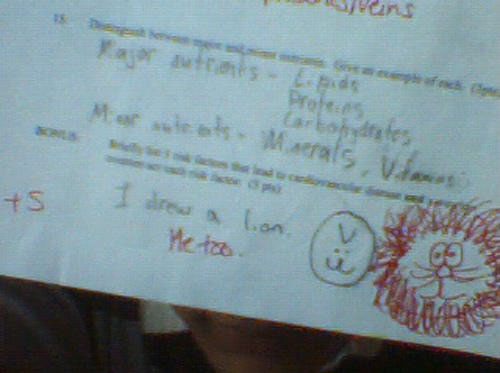 18. Distinguish between major and minor nutrients. Give an example of each.
Major nutrients - Lipids
Proteins
Carbohydrates
Minor nutrients - Minerals, Vitamins
BONUS: Briefly list 5 risk factors that lead to cardiovascular disease and
counteract each risk factor. (5 pts)
+5
I drew a lion.
Me too.